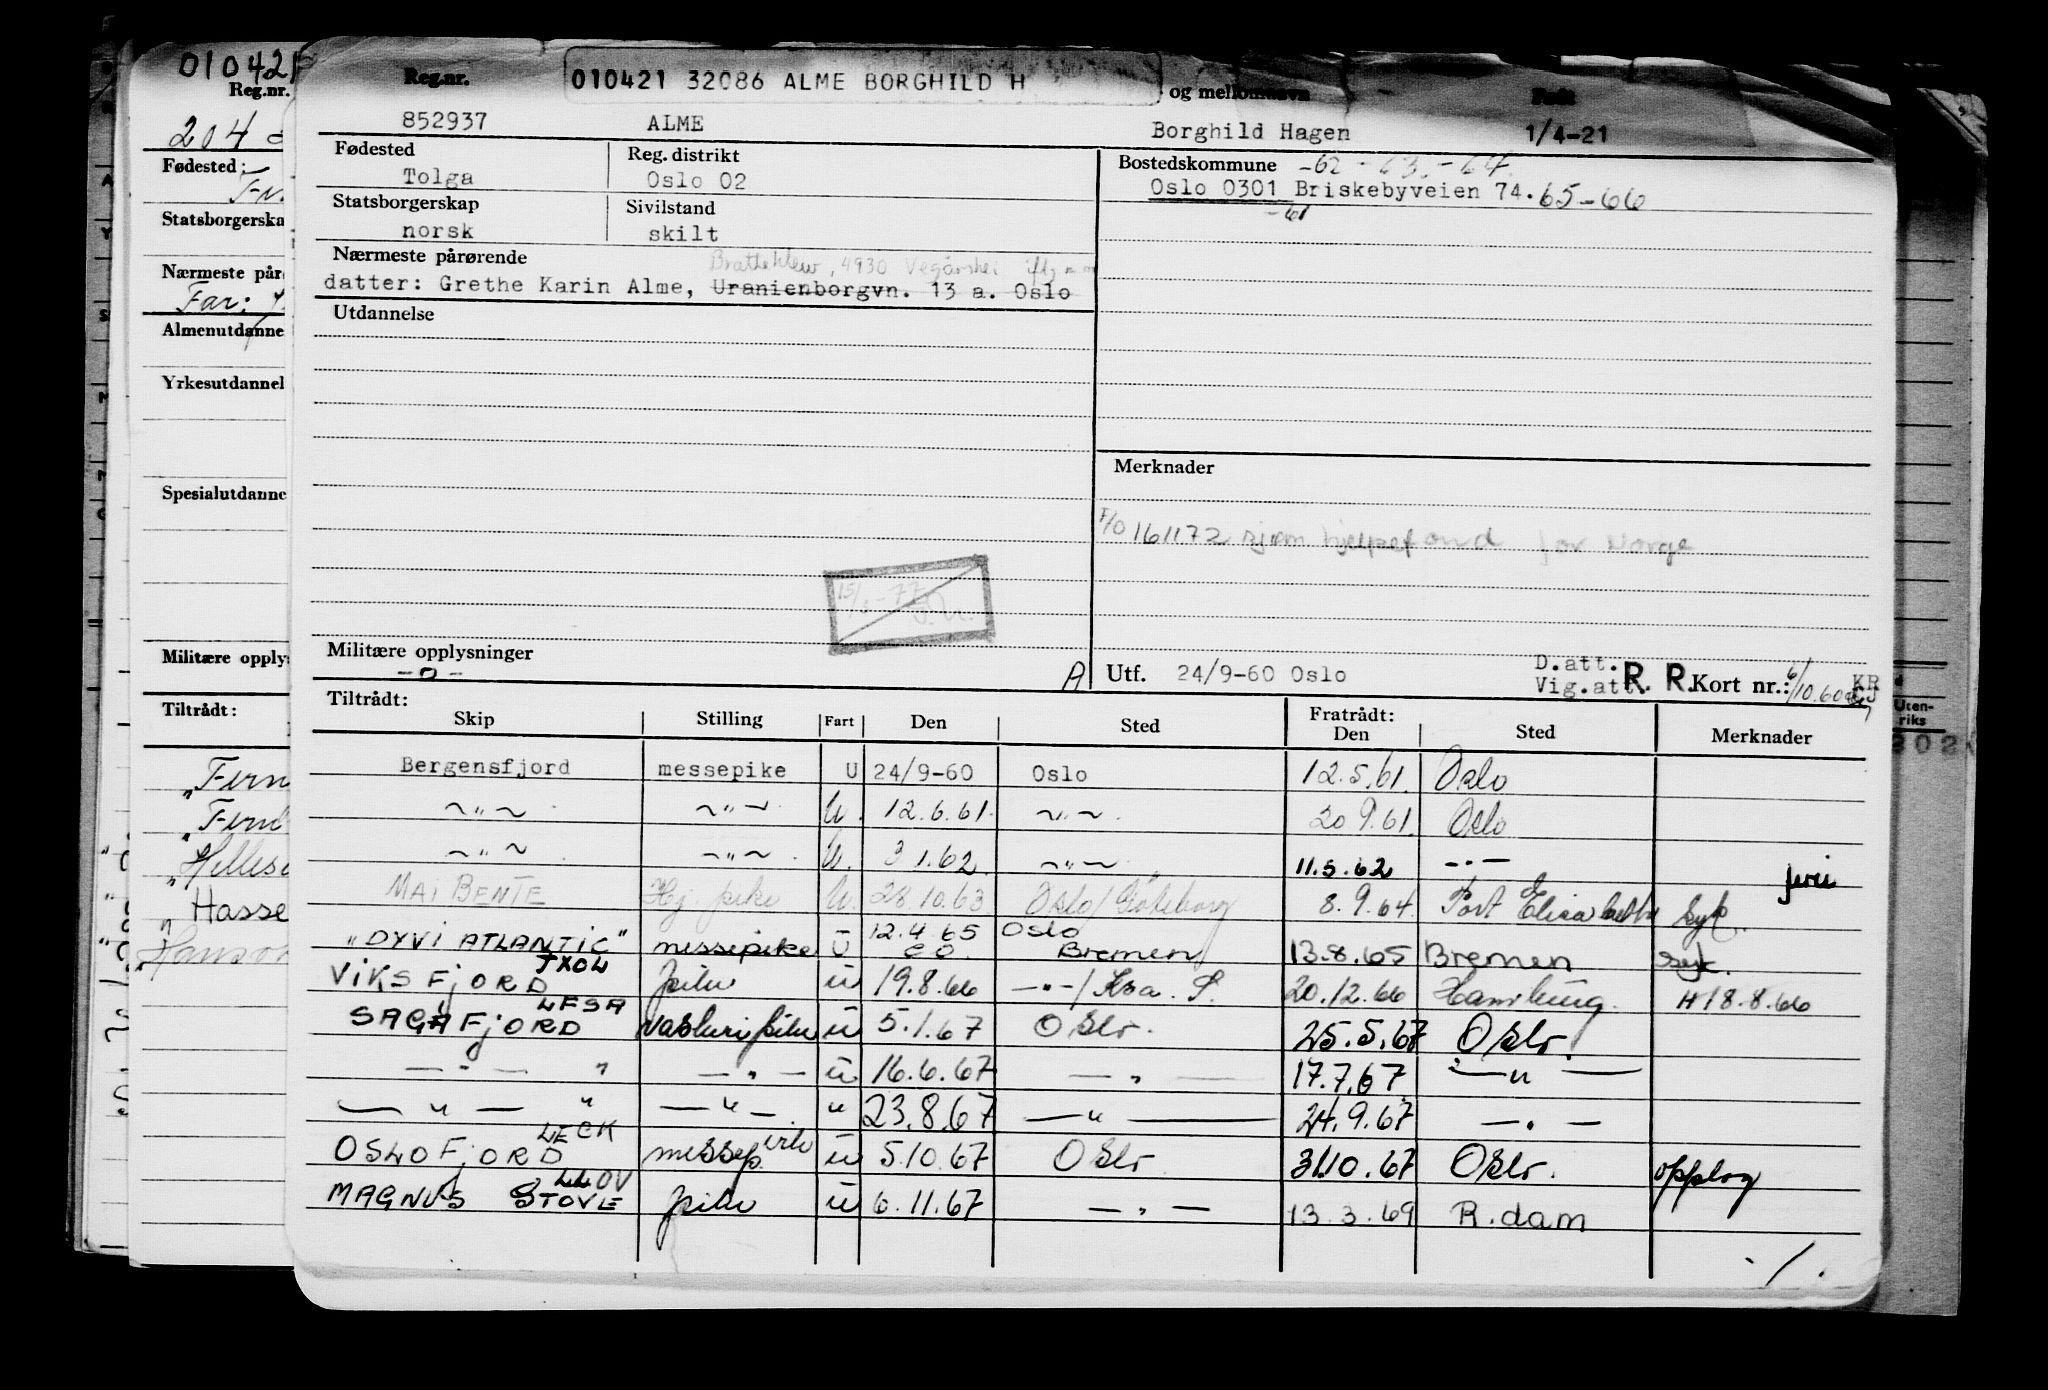 010421
Reg.nr.
204
Fødested:
Statsborgerska
Nærmeste pår
Far:
Almenutdanne
Yrkesutdannel
Spesialutdanne
Militære opply
Tiltrådt:
Hasse
Reg.nr. 010421 32086 ALME BORGHILD H og mellomnavn Født
852937 ALME Borghild Hagen 1/4-21
Fødested Reg. distrikt Bostedskommune -62 - 63. - 64.
Tolga Oslo 02 Oslo 0301 Briskebyveien 74. 65-66
Statsborgerskap Sivilstand -61
norsk skilt
Nærmeste pårørende 4930 Vegårshei
datter: Grethe Karin Alme, Uranienborgvn. 13 a. Oslo
Utdannelse
Merknader
161172 hjelpefond for Norge
Militære opplysninger
-o-
A Utf. 24/9-60 Oslo D.att. Vig.att. R. R. Kort nr.: 6/10.60 KR
Tiltrådt: Fratrådt:
Skip Stilling Fart Den Sted Den Sted Merknader
Uten-
riks
202
Bergensfjord messepike U 24/9-60 Oslo 12.5.61. Oslo
~"~ ~"~ U. 12.6.61. ~"~ 20 9.61. Oslo
~"~ ~"~ U. 3 1.62. ~"~ 11.5.62 -"-
MAI BENTE Hj. pike U. 28.10.63. Oslo/Göteborg 8.9.64. Port Elisabeth Syk.
"DYVI ATLANTIC" messepike U 12.4.65 Oslo Bremen 13.8.65 Bremen syk.
JXOW
VIKSFJORD pike u 19.8.66 -"-/Kra. S. 20.12.66 Hamburg. H18.8.66
LFSA
SAGAFJORD vaskeripike u 5.1.67 Oslo. 25.5.67 Oslo.
-"- " -"- u 16.6.67 -"- 17.7.67 -"-
-"- " -"- " 23.8.67 -"- 24.9.67 -"-
LECK
OSLOFJORD messepike u 5.10.67 Oslo 31.10.67 Oslo. opplag
LLOV
MAGNUS STOVE pike u 6.11.67 -"- 13.3.69 R.dam